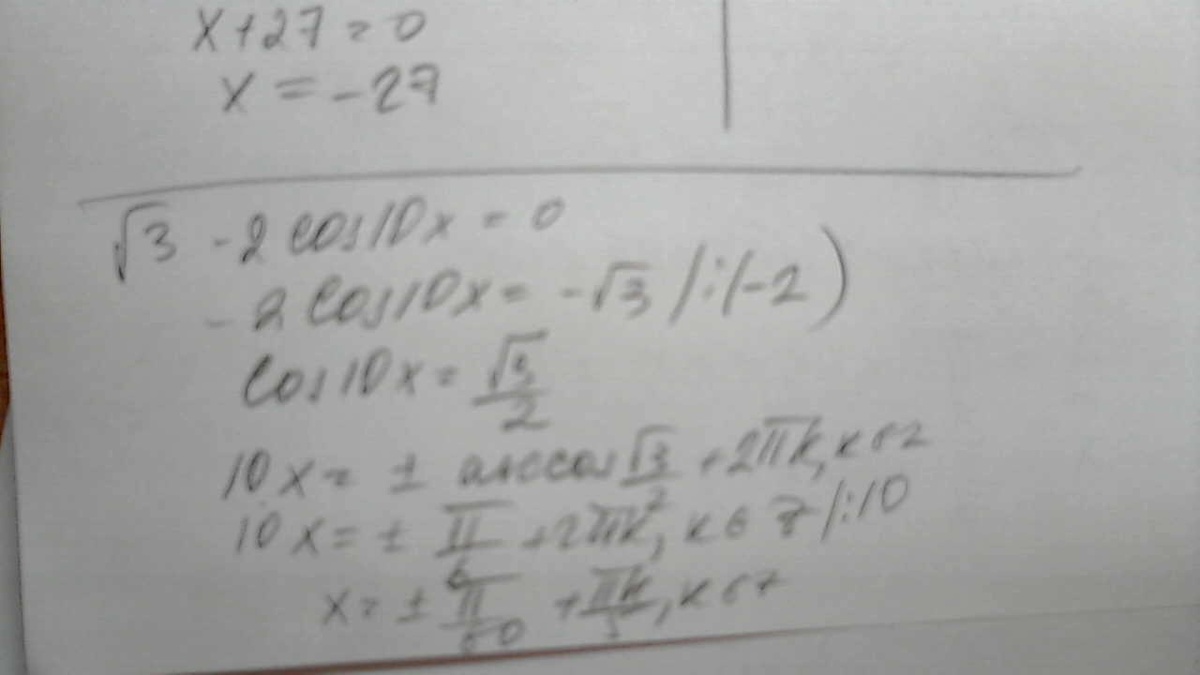 x+27=0
x=-27
√3 - 2cos10x = 0
-2cos10x = -√3 /:(-2)
cos10x = √3/2
10x = ± arccos √3/2 + 2πk, k∈z
10x = ± π/6 + 2πk, k∈z /:10
x = ± π/60 + πk/5, k∈z